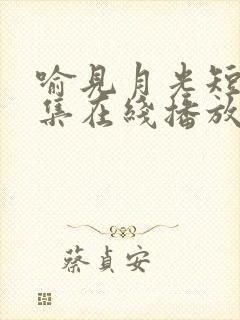 喻見月光短
集在綫播放
蔡貞安